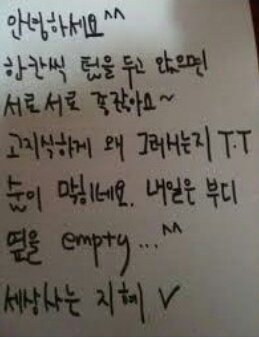 안녕하세요^^
한칸씩 텀을 두고 앉으면
서로서로 좋잖아요~
고지식하게 왜 그러시는지 T.T
숨이 막히네요. 내일은 부디
옆을 empty...^^
세상사는 지혜 ✓